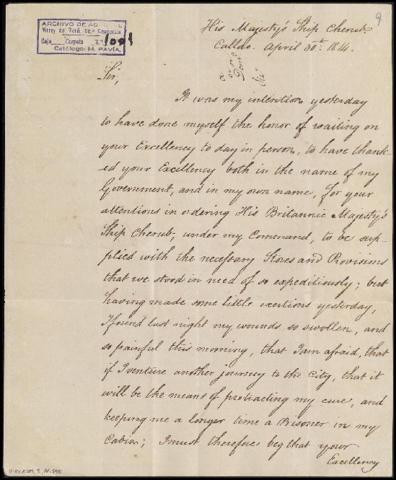 9
ARCHIVO DE
Virrey del Perú
Caja Carpeta
Catálogo: M. PAVÍA.
His Majesty's Ship Cherub
Callao. April 30th. 1814.
Sir,
It was my intention yesterday
to have done myself the honor of waiting on
your Excellency to day in person, to have thank-
ed your Excellency both in the name of my
Government, and in my own name, for your
attentions in ordering His Britannic Majesty's
Ship Cherub, under my Command, to be sup-
plied with the necessary Stores and Provisions
that we stood in need of so expeditiously; but
having made some little exertions yesterday,
I found last night my wounds so swollen, and
so painful this morning, that I am afraid, that
if I venture another journey to the City, that it
will be the means of protracting my cure, and
keeping me a longer time a Prisoner in my
Cabin; I must therefore beg that your
Excellency